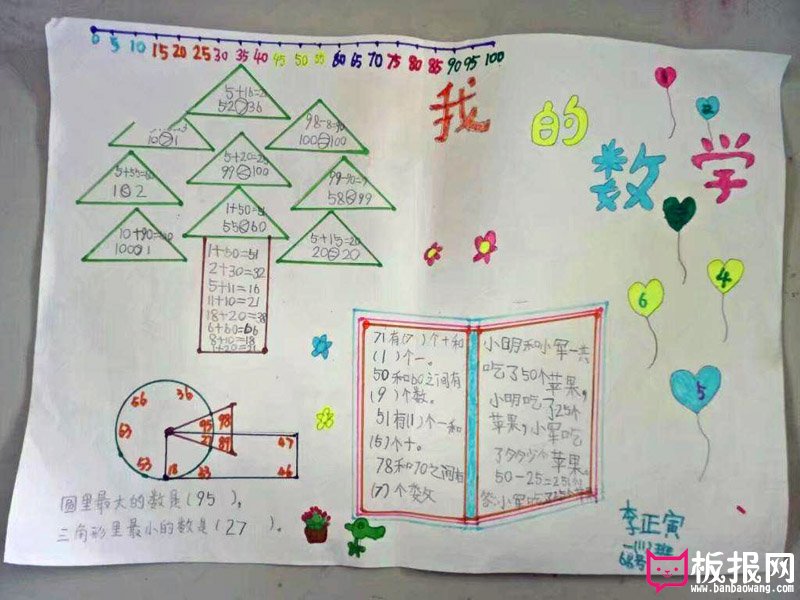 0 5 10 15 20 25 30 35 40 45 50 55 60 65 70 75 80 85 90 95 100
我的
数学
52 36
98-8=90
100 100
5+20=25
99 100
1 2
58 99
1+50=51
55 60
5+15=20
20 20
1+50=51
2+30=32
5+11=16
11+10=21
18+20=38
6+60=66
8+10=18
1 2 3 4 5 6
71有(7)个十和
(1)个一。
50和60之间有
(9)个数。
51有(1)个一和
(5)个十。
78和70之间有
(7)个数
小明和小军一共
吃了50个苹果,
小明吃了25个
苹果,小军吃
了多少个苹果。
50-25=25(个)
答:小军吃了25个苹果
56 36
63 95 98
27 89 47
53 18 33 46
圆里最大的数是(95)。
三角形里最小的数是(27)。
李正寅
68号
板报网
www.banbaowang.com